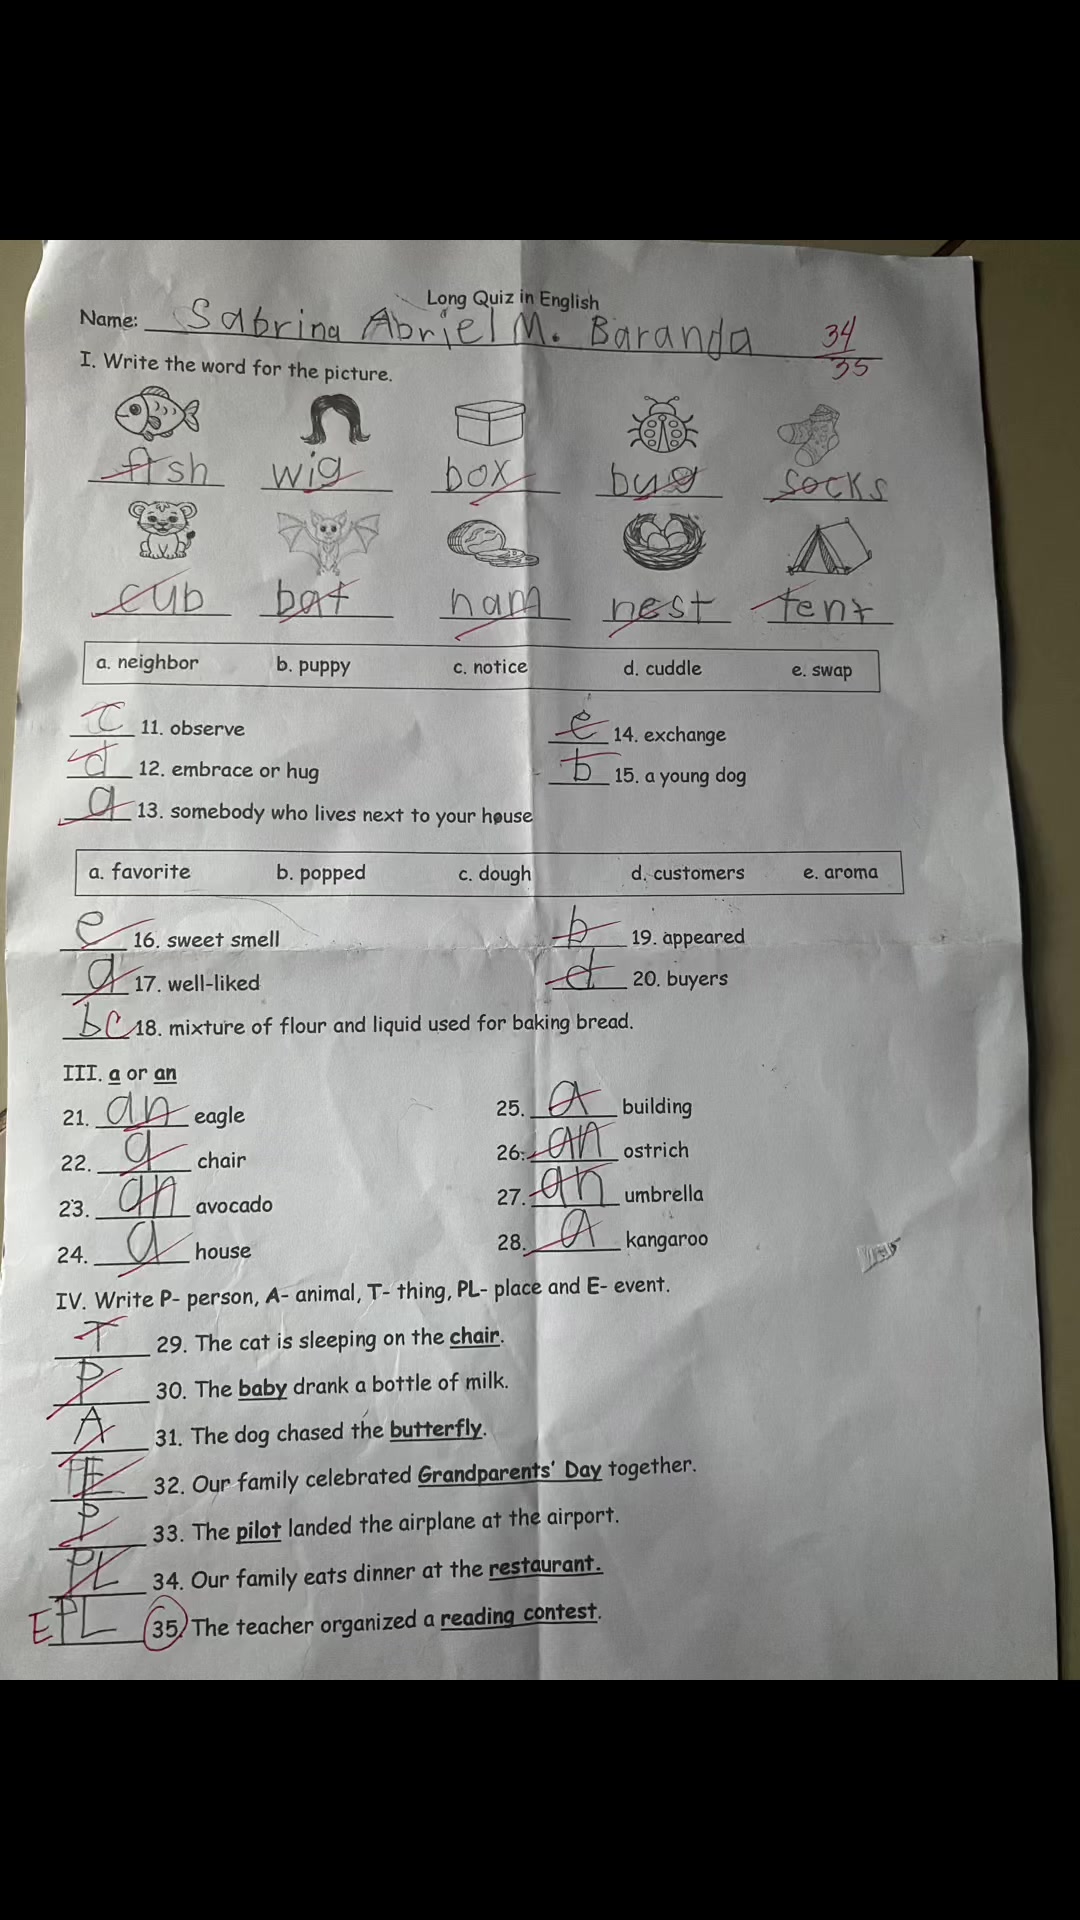 Long Quiz in English
Name: Sabrina Abriel M. Baranda 34/35
I. Write the word for the picture.
fish wig box bug socks
cub bat ham nest tent
a. neighbor b. puppy c. notice d. cuddle e. swap
c 11. observe e 14. exchange
d 12. embrace or hug b 15. a young dog
a 13. somebody who lives next to your house
a. favorite b. popped c. dough d. customers e. aroma
e 16. sweet smell b 19. appeared
a 17. well-liked d 20. buyers
bc 18. mixture of flour and liquid used for baking bread.
III. a or an
21. an eagle 25. a building
22. a chair 26. an ostrich
23. an avocado 27. an umbrella
24. a house 28. a kangaroo
IV. Write P- person, A- animal, T- thing, PL- place and E- event.
T 29. The cat is sleeping on the chair.
P 30. The baby drank a bottle of milk.
A 31. The dog chased the butterfly.
E 32. Our family celebrated Grandparents' Day together.
P 33. The pilot landed the airplane at the airport.
PL 34. Our family eats dinner at the restaurant.
E PL 35. The teacher organized a reading contest.